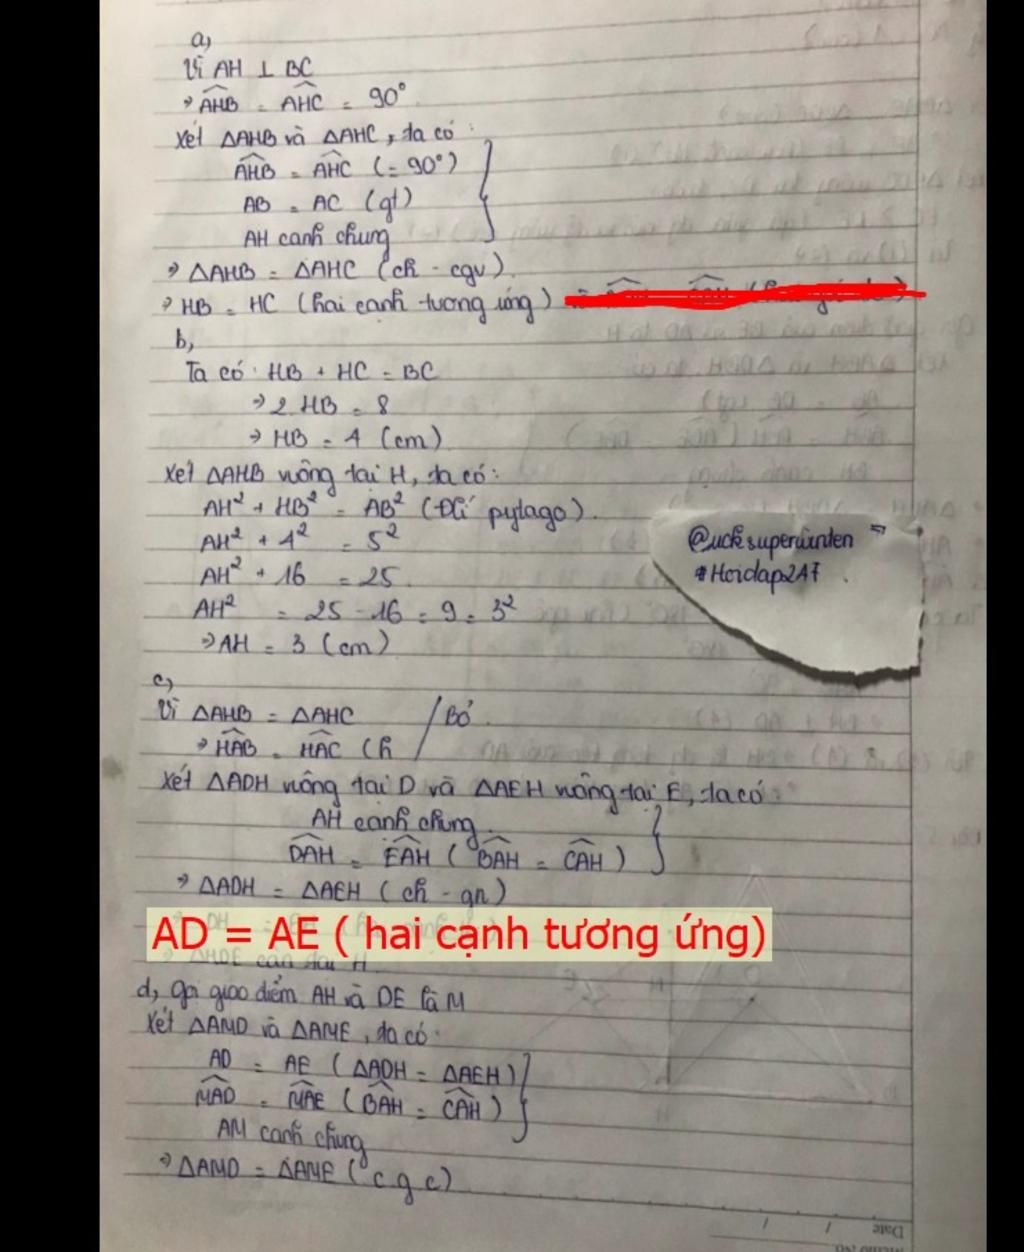 a,
Vì AH ⊥ BC
⇒ AHB = AHC = 90°
Xét ΔAHB và ΔAHC, ta có :
AHB = AHC (= 90°)
AB = AC (gt)
AH cạnh chung
⇒ ΔAHB = ΔAHC (ch - cgv).
⇒ HB = HC (hai cạnh tương ứng)
b,
Ta có : HB + HC = BC
⇒ 2 HB = 8
⇒ HB = 4 (cm)
Xét ΔAHB vuông tại H, ta có :
AH² + HB² = AB² (Đlí pytago).
AH² + 4² = 5²
AH² + 16 = 25.
AH² = 25 - 16 = 9 = 3²
⇒ AH = 3 (cm)
#Hoidap247
c,
Vì ΔAHB = ΔAHC / Bỏ.
⇒ HAB = HAC (h
Xét ΔADH vuông tại D và ΔAEH vuông tại E, ta có :
AH cạnh chung.
DAH = EAH ( BAH = CAH )
⇒ ΔADH = ΔAEH ( ch - gn )
AD = AE ( hai cạnh tương ứng)
ΔHDE cân tại H.
d, gọi giao điểm AH và DE là M
Xét ΔAMD và ΔAME, ta có :
AD = AE ( ΔADH = ΔAEH )
MAD = MAE ( BAH = CAH )
AM cạnh chung
⇒ ΔAMD = ΔAME ( c g c )
Date